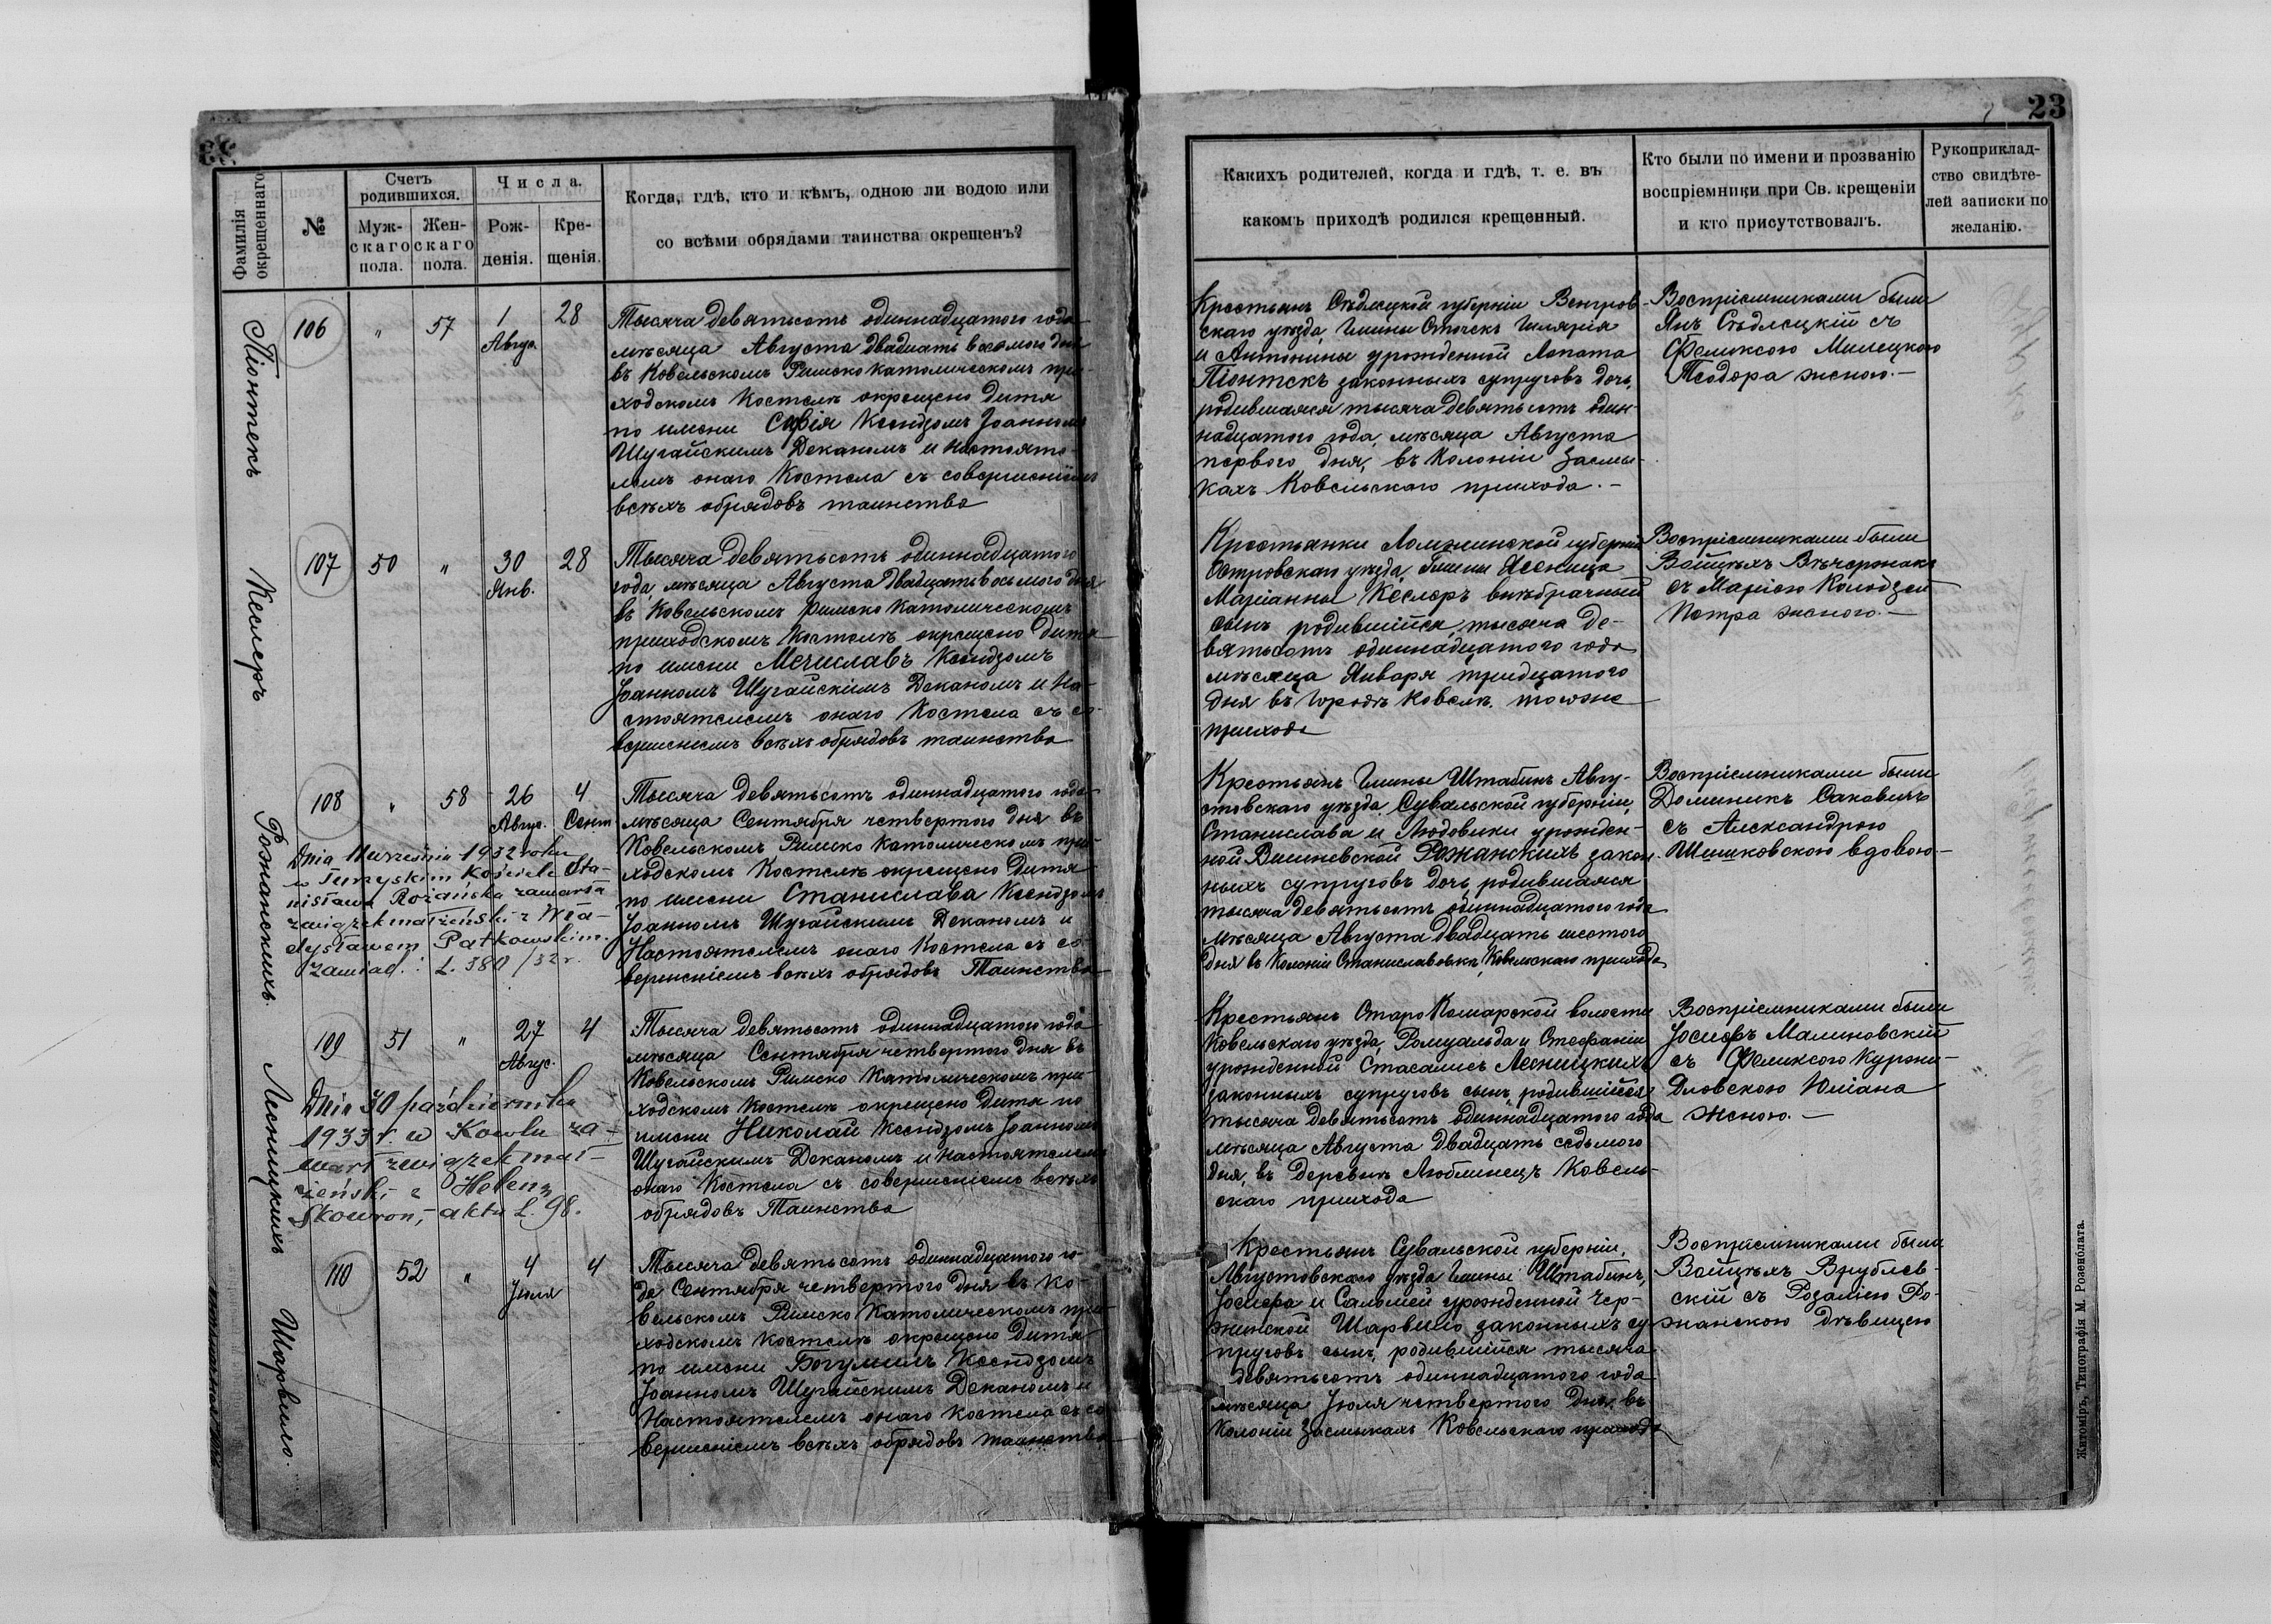 23
Фамилія
окрещеннаго
№
Счетъ
родившихся.
Муж-
скаго
пола.
Жен-
скаго
пола.
Числа.
Рож-
денія.
Кре-
щенія.
Когда, гдѣ, кто и кѣмъ, одною ли водою или
со всѣми обрядами таинства окрещенъ?
Какихъ родителей, когда и гдѣ, т. е. въ
какомъ приходѣ родился крещенный.
Кто были по имени и прозванію
воспріемники при Св. крещеніи
и кто присутствовалъ.
Рукоприклад-
ство свидѣте-
лей записки по
желанію.
Піонтекъ
106
"
57
1
Авгус.
28
Тысяча девятьсотъ одиннадцатого года
мѣсяца Августа двадцать восьмого дня
въ Ковельскомъ Римско Католическомъ при-
ходскомъ Костелѣ окрещено дитя
по имени Софія Ксендзомъ Іоанномъ
Шугайскимъ Деканомъ и Настояте-
лемъ онаго Костела съ совершеніемъ
всѣхъ обрядовъ таинства
Крестьянъ Сѣдлецкой губерніи Венгров-
скаго уѣзда, Гмины Сточекъ Гиларія
и Антонины урожденной Лопата
Піонтекъ законныхъ супруговъ дочь,
родившаяся тысяча девятьсотъ один-
надцатого года, мѣсяца Августа
первого дня, въ Колоніи Засмы-
кахъ Ковельскаго прихода.-
Воспріемниками были
Янъ Сѣдлецкій съ
Феликсою Милецкою
Теодора женою.-
Кеслеръ
107
50
"
30
Янв.
28
Тысяча девятьсотъ одиннадцатого
года, мѣсяца Августа двадцать восьмого дня
въ Ковельскомъ Римско Католическомъ
приходскомъ Костелѣ окрещено дитя
по имени Мечиславъ Ксендзомъ
Іоанномъ Шугайскимъ Деканомъ и На-
стоятелемъ онаго Костела съ со-
вершенiемъ всѣхъ обрядовъ таинства
Крестьянки Ломжинской губерніи
Островскаго уѣзда, Гмины Ясеница
Маріанны Кеслеръ внѣбрачный
сынъ родившійся, тысяча де-
вятьсотъ одиннадцатого года
мѣсяца Января тридцатого
дня въ городѣ Ковелѣ. тогоже
прихода
Воспріемниками были
Войцѣхъ Вѣчоржакъ
съ Маріею Колодзей
Петра женою.-
Рожанскихъ.
108
"
58
26
Авгус.
4
Сент
Dnia 11 września 1932 roku
w Turzyskim Kościele Sta-
nisława Rożańska zawarła
związek małżeński z Wła-
dysławem Patkowskim.
zawiad.: L. 380/32 r.
Тысяча девятьсотъ одиннадцатого года
мѣсяца Сентября четвертого дня въ
Ковельскомъ Римско Католическомъ при-
ходскомъ Костелѣ окрещено дитя
по имени Станислава Ксендзомъ
Іоанномъ Шугайскимъ Деканомъ и
Настоятелемъ онаго Костела съ со-
вершеніемъ всѣхъ обрядовъ Таинства
Крестьянъ Гмины Штабинъ Авгу-
стовскаго уѣзда, Сувальской губерніи,
Станислава и Людовики урожден-
ной Вишневской Рожанскихъ закон-
ныхъ супруговъ дочь, родившаяся
тысяча девятьсотъ одиннадцатого года
мѣсяца Августа двадцать шестого
дня въ Колоніи Станиславовкѣ, Ковельскаго прихода
Воспріемниками были
Доминикъ Саковичъ
съ Александрою
Шишковскою вдовою-
Лесницкихъ
109
51
"
27
Авгус.
4
Dnia 30 października
1933 r. w Kowlu za-
warł związek mał-
żeński z Heleną
Skowron,- aktu L. 98.
Тысяча девятьсотъ одиннадцатого года
мѣсяца Сентября четвертого дня въ
Ковельскомъ Римско Католическомъ при-
ходскомъ Костелѣ окрещено дитя по
имени Николай Ксендзомъ Іоанномъ
Шугайскимъ Деканомъ и Настоятелемъ
онаго Костела съ совершеніемъ всѣхъ
обрядовъ Таинства
Крестьянъ Старо Кошарской волости
Ковельскаго уѣзда, Ромуальда и Стефаніи
урожденной Стасались Лесницкихъ
законныхъ супруговъ сынъ, родившійся
тысяча девятьсотъ одиннадцатого года
мѣсяца Августа двадцать седьмого
дня, въ деревнѣ Люблинецъ Ковель-
скаго прихода
Воспріемниками были
Іосифъ Малиновскій
съ Феликсою Куржи-
дловскою Юліана
женою.-
Шарвило.
110
52
"
4
Іюля
4
Тысяча девятьсотъ одиннадцатого го-
да Сентября четвертого дня въ Ко-
вельскомъ Римско Католическомъ при-
ходскомъ Костелѣ окрещено дитя
по имени Богумилъ Ксендзомъ
Іоанномъ Шугайскимъ Деканомъ и
Настоятелемъ онаго Костела съ со-
вершеніемъ всѣхъ обрядовъ таинства
Крестьянъ Сувальской губерніи,
Августовскаго уѣзда Гмины Штабинъ,
Іосифа и Саломеи урожденной Чер-
жинской Шарвило законныхъ су-
пруговъ сынъ, родившійся тысяча
девятьсотъ одиннадцатого года
мѣсяца Іюля четвертого дня, въ
Колоніи Засмыкахъ Ковельскаго прихода
Воспріемниками были
Войцѣхъ Врублев-
скій съ Розаліею Ро-
жанскою дѣвицею
Житоміръ, Типографія М. Розенблата.